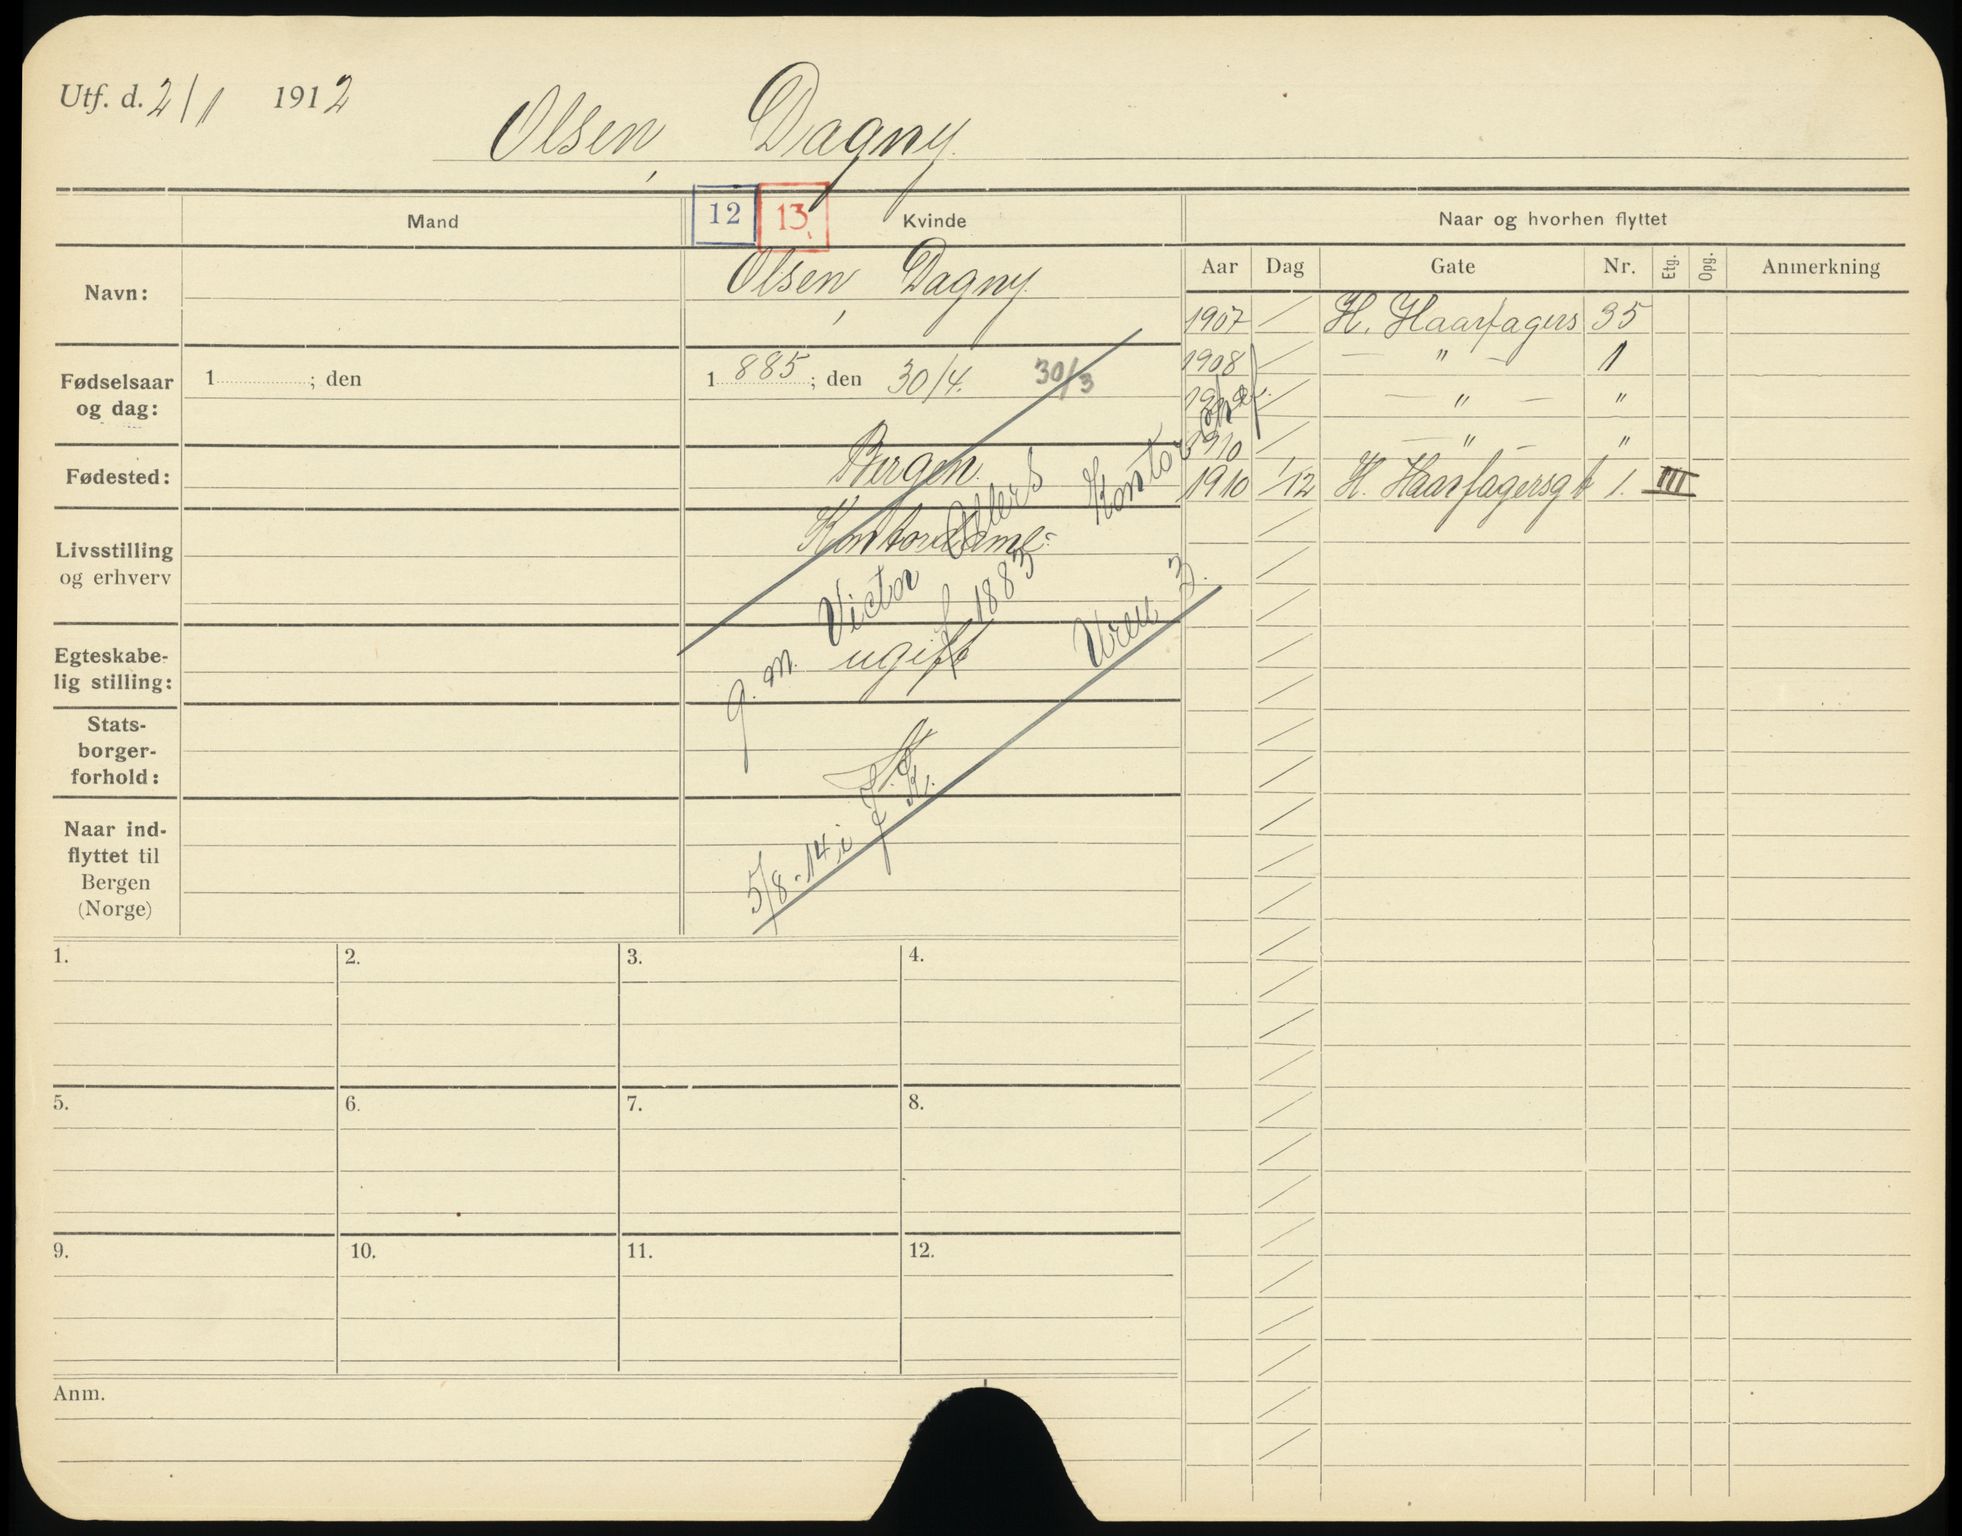 Utf. d. 2/1 1912
Olsen, Dagny.
Mand
12 13
Kvinde
Naar og hvorhen flyttet
Navn:
Olsen, Dagny.
Fødselsaar
og dag:
1 ; den
1885; den 30/4. 30/3
Fødested:
Bergen.
Livsstilling
og erhverv
Kontordame
Egteskabe-
lig stilling:
ugift
g. m. Victor 1883
Uren 3.
Stats-
borger-
forhold:
Naar ind-
flyttet til
Bergen
(Norge)
5/8-14 i
Aar Dag Gate Nr. Etg. Opg. Anmerkning
1907 H. Haarfagers 35
1908 — " — 1
— " — "
1910 — " — "
1910 1/12 H. Haarfagersgt 1. III
1. 2. 3. 4.
5. 6. 7. 8.
9. 10. 11. 12.
Anm.